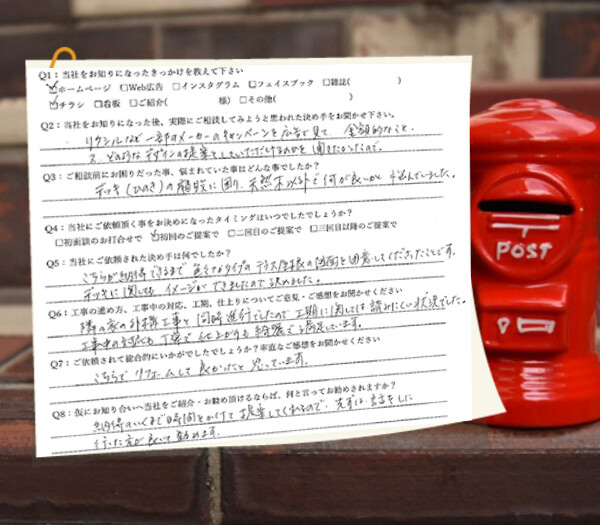 Q1：当社をお知りになったきっかけを教えて下さい
☑ホームページ □Web広告 □インスタグラム □フェイスブック □雑誌( )
☑チラシ □看板 □ご紹介( 様) □その他( )
Q2：当社をお知りになった後、実際にご相談してみようと思われた決め手をお聞かせ下さい。
リクシルなど一部のメーカーのキャンペーンを広告で見て、金額的なこと、
又、どのような デザインの提案をしていただけるのかを聞きたかったので。
Q3：ご相談前にお困りだった事、悩まれていた事はどんな事でしたか？
デッキ(ひのき)の腐敗に困り、天然木以外で何が良いかと悩んでいました。
Q4：当社にご依頼頂く事をお決めになったタイミングはいつでしたでしょうか？
□初面談のお打合せで ☑初回のご提案で □二回目のご提案で □三回目以降のご提案で
Q5：当社にご依頼された決め手は何でしたか？
こちらが納得できるまで 色々なタイプの テラス屋根の図面を用意してくださったことです。
デッキに関しても イメージができましたので決めました。
Q6：工事の進め方、工事中の対応、工期、仕上りについてご意見・ご感想をお聞かせください
隣の家の外構工事と同時進行でしたので 工期に関しては読みにくい状況でした。
工事中の対応も丁寧で 仕上がりも綺麗で満足しています。
Q7：ご依頼されて総合的にいかがでしたでしょうか？率直なご感想をお聞かせください
こちらで リフォームして良かったと思っています。
Q8：仮にお知り合いへ当社をご紹介・お勧め頂けるならば、何と言ってお勧めされますか？
納得のいくまで時間をかけて提案してくれるので、先ずは、話をしに
行った方が良いと勧めます。
POST